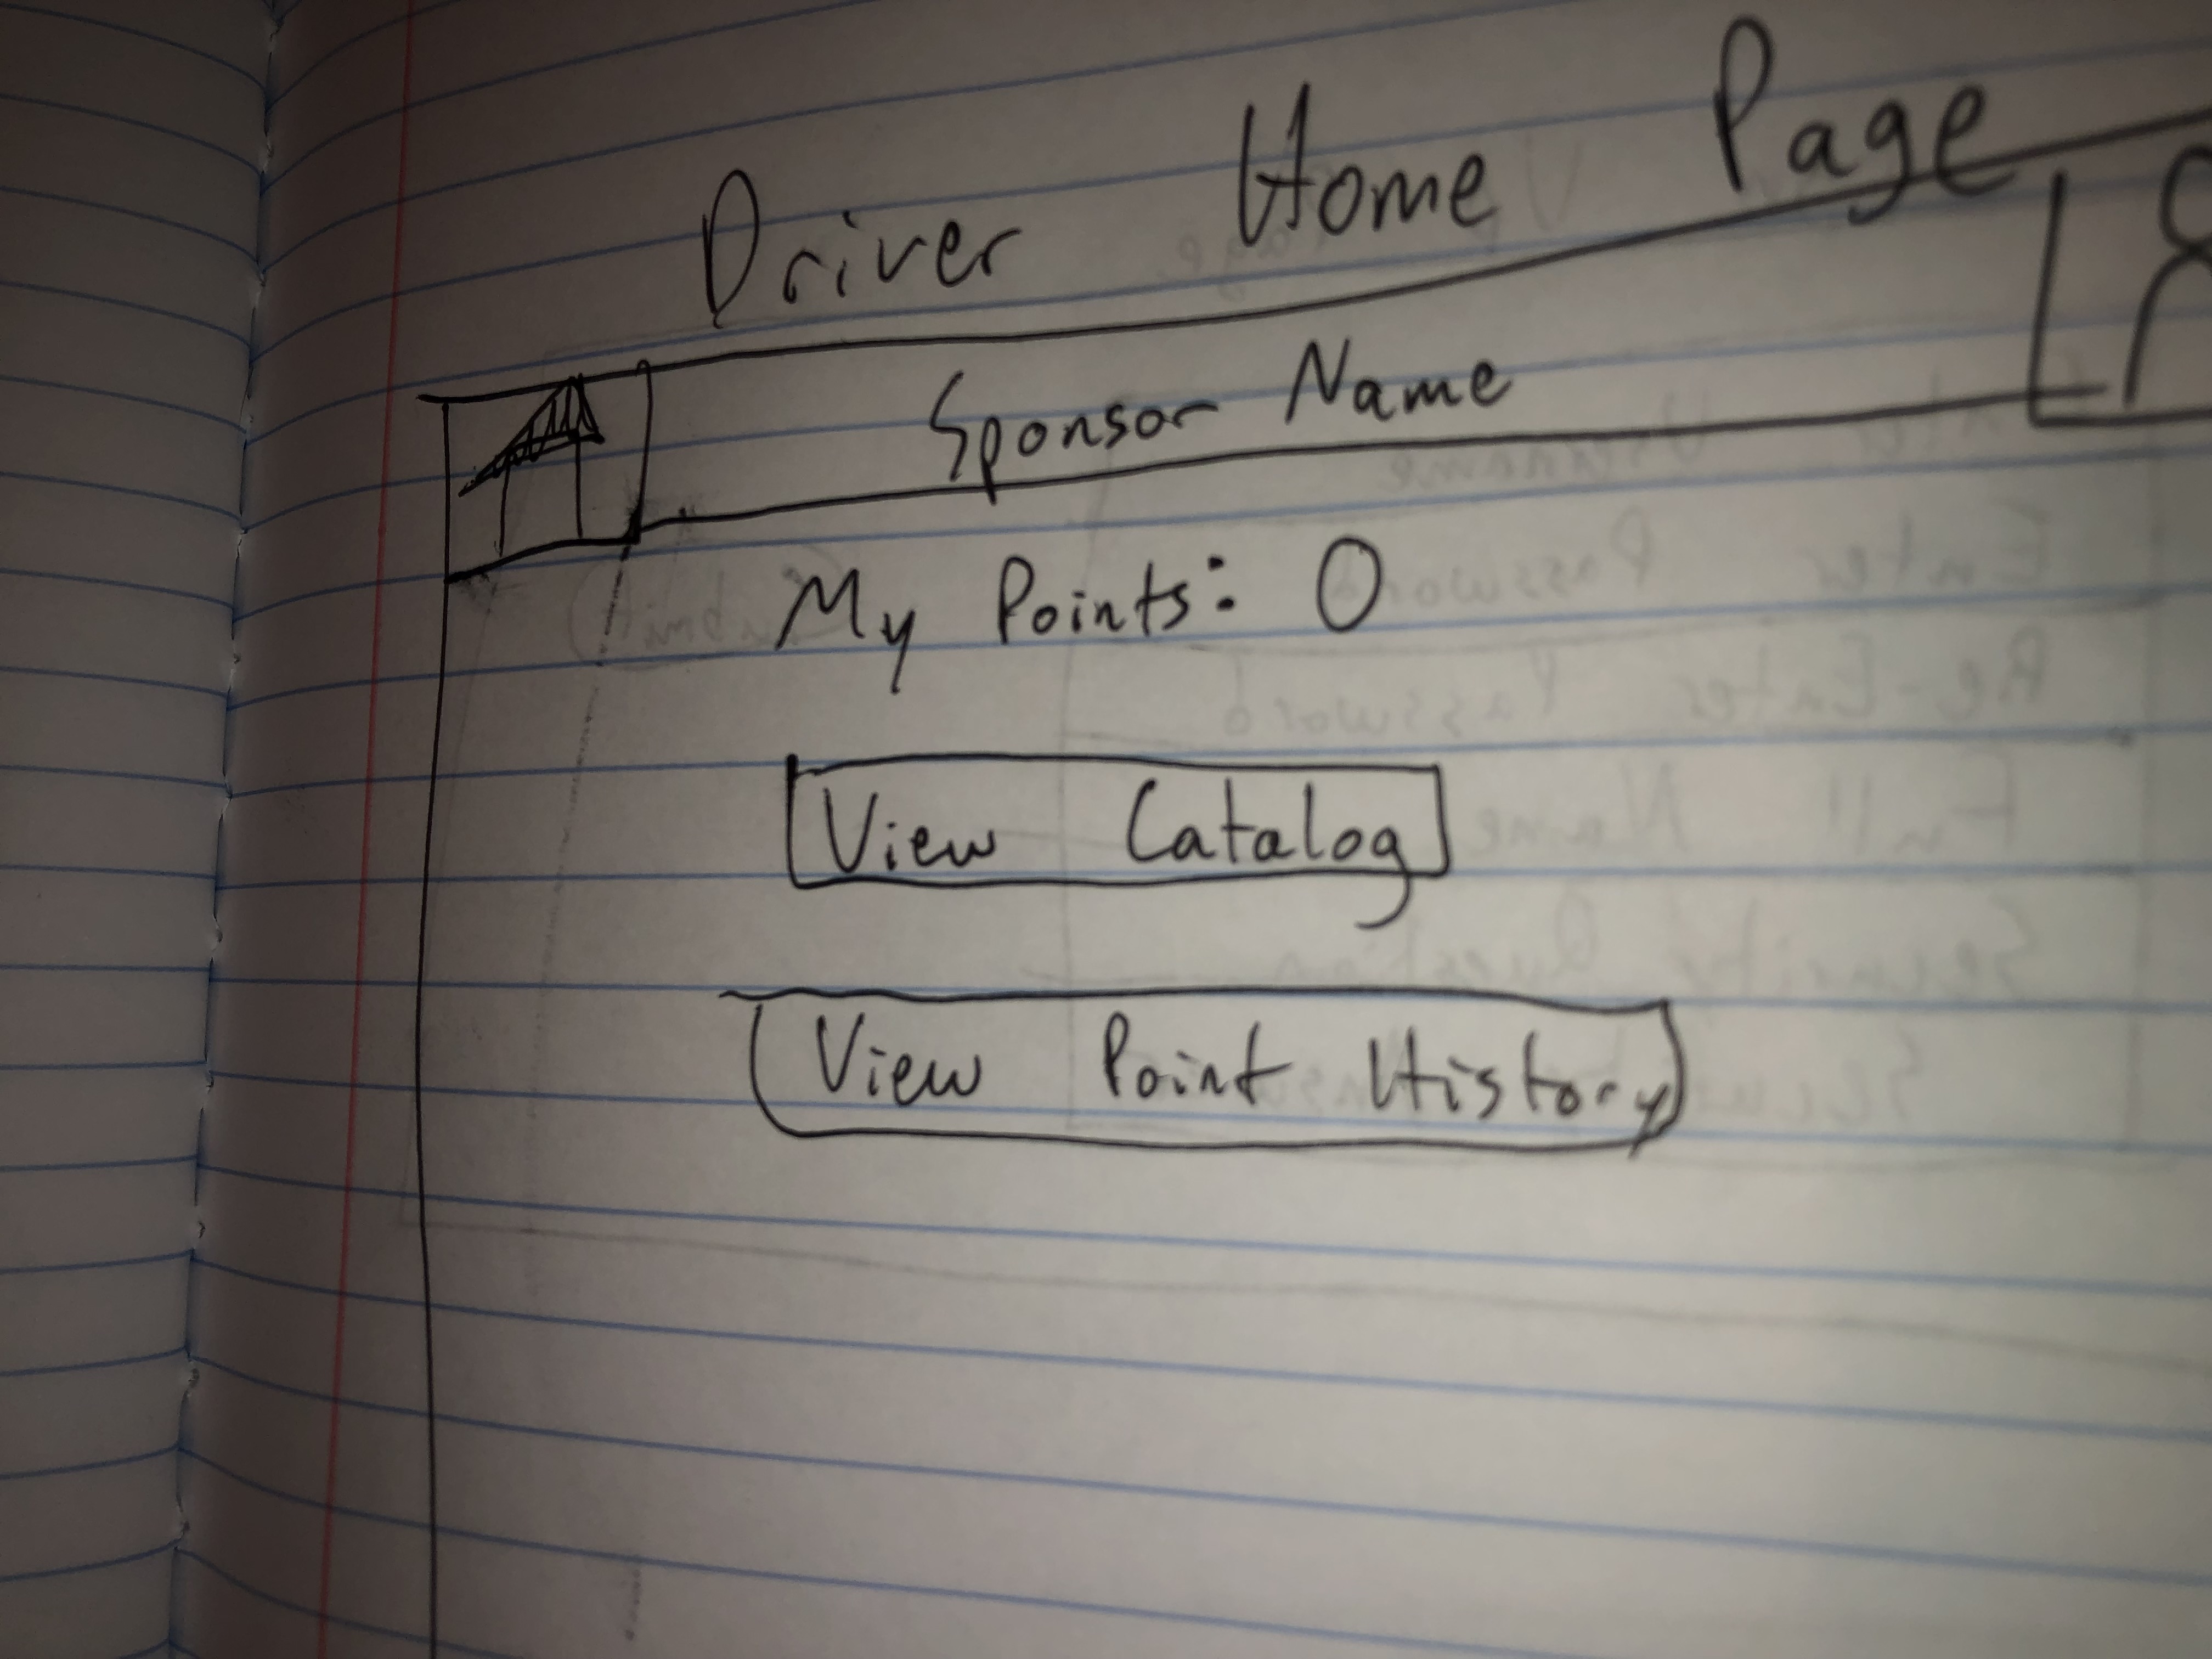 Driver Home Page
Sponsor Name
My Points: 0
View Catalog
View Point History